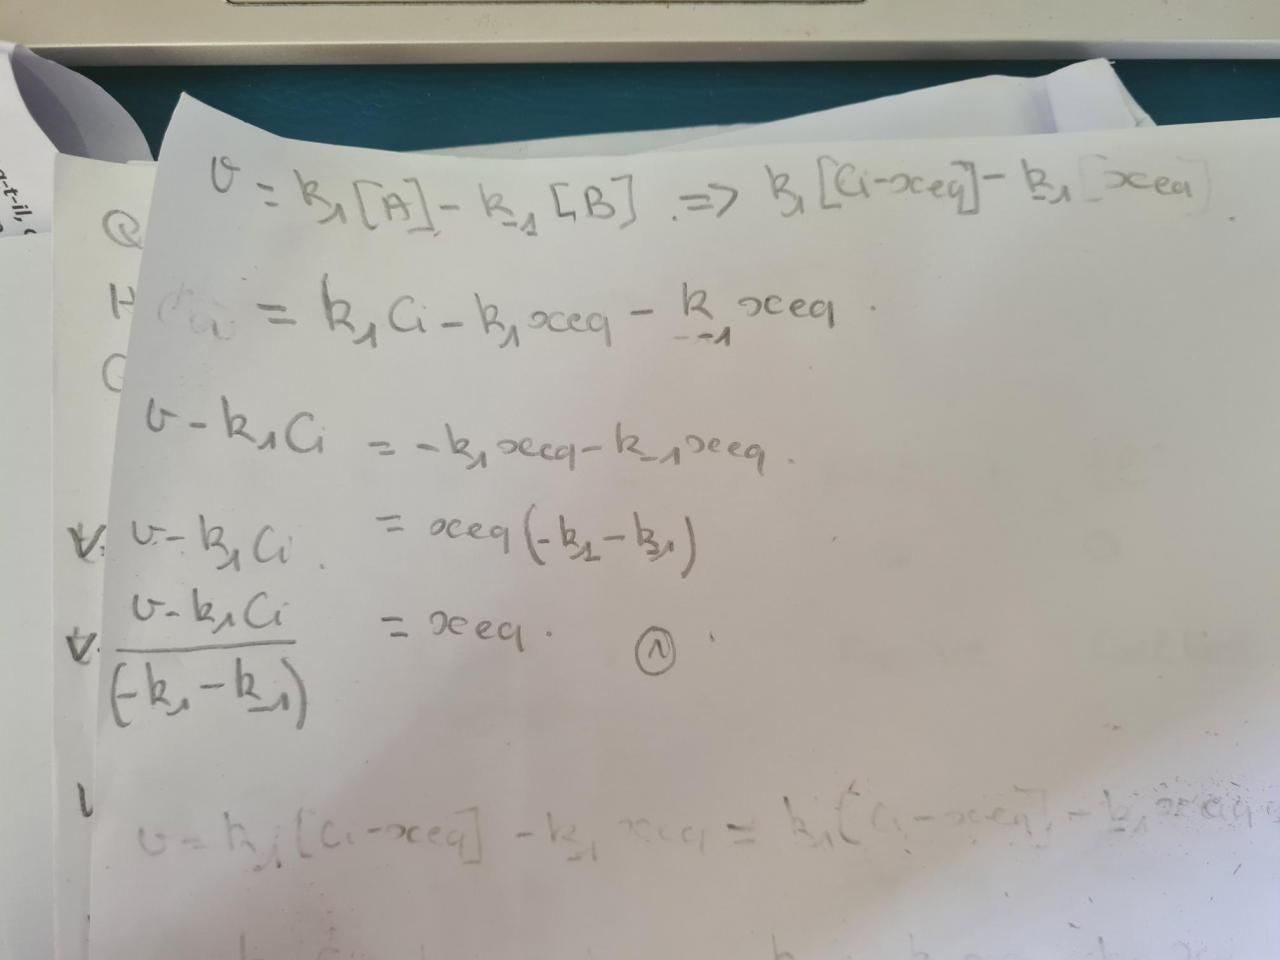 a-t-il,
v = k₁[A] - k₋₁[B] . => k₁[Ci-xeq] - k₋₁[xeq] .
Q
H = k₁Ci - k₁xeq - k₋₁xeq .
C
v - k₁Ci = -k₁xeq - k₋₁xeq .
v - k₁Ci . = xeq(-k₁-k₋₁)
v - k₁Ci / (-k₁ - k₋₁) = xeq . ①
v = k₁[Ci-xeq] - k₋₁ xeq = k₁[Ci-xeq] - k₋₁xeq